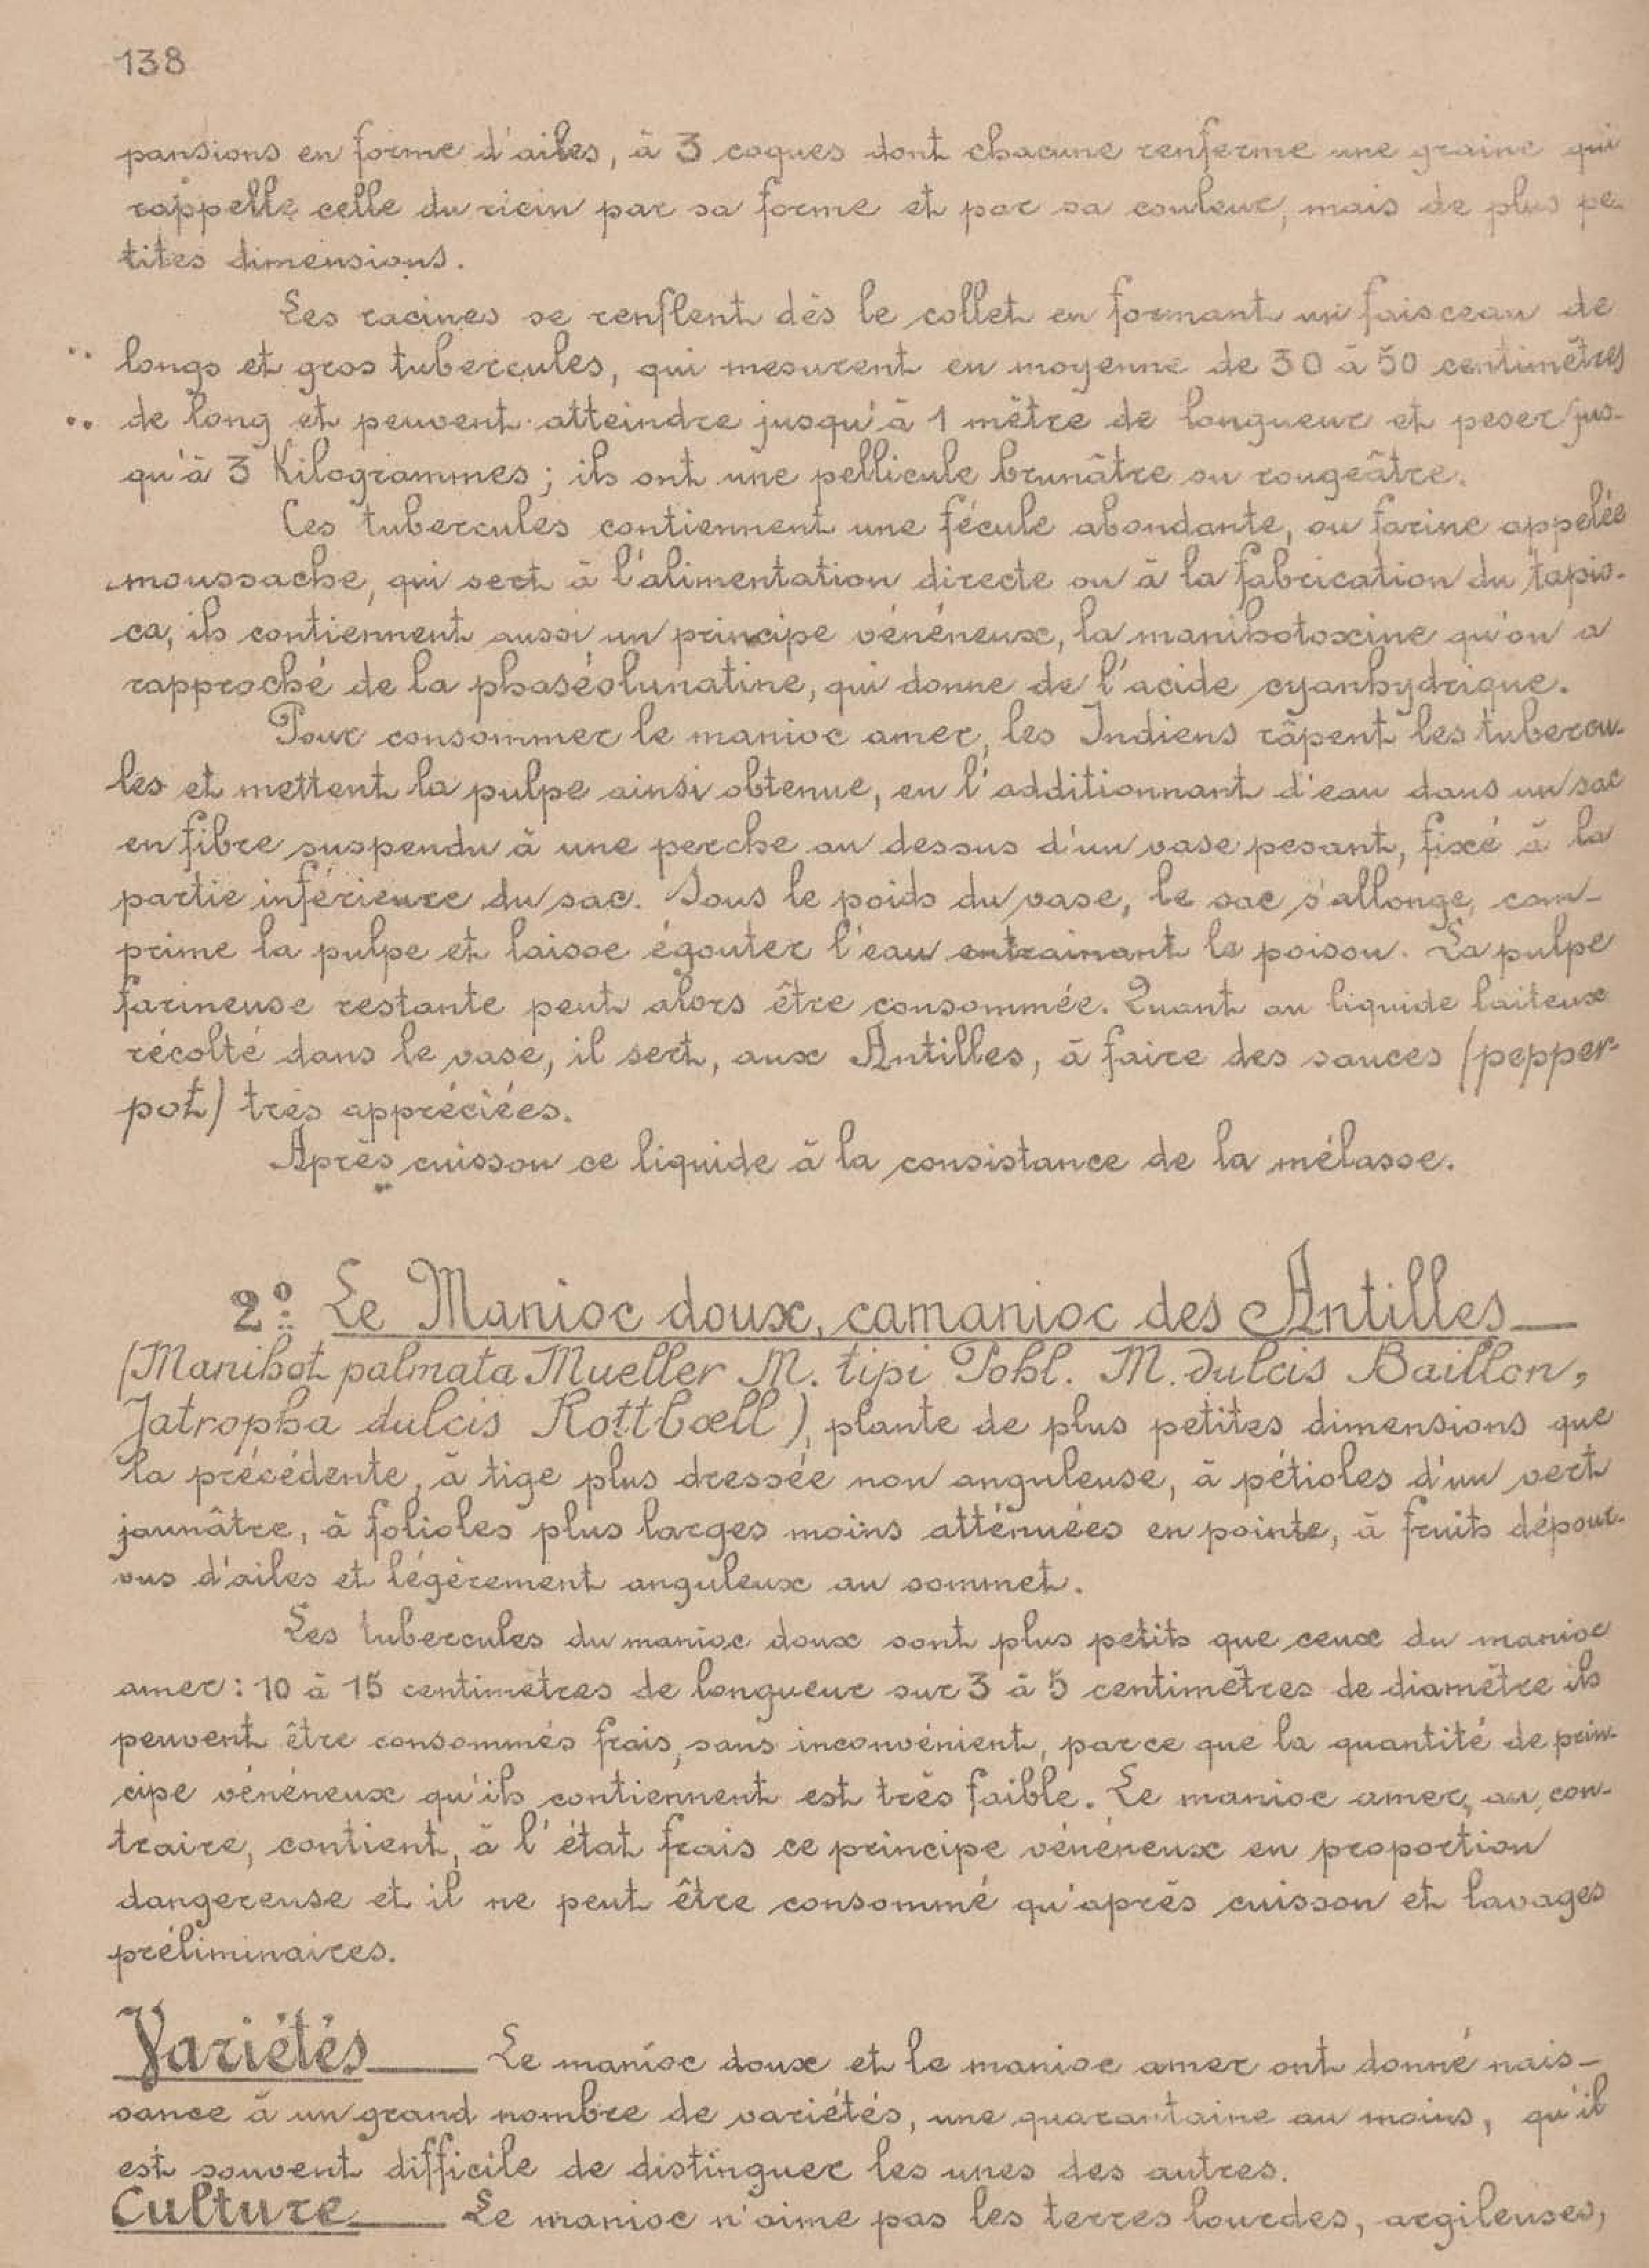 138
pansions en forme d'ailes, à 3 coques dont chacune renferme une graine qui
rappelle celle du ricin par sa forme et par sa couleur, mais de plus pe-
tites dimensions.
Les racines se renflent dès le collet en formant un faisceau de
longs et gros tubercules, qui mesurent en moyenne de 30 à 50 centimètres
de long et peuvent atteindre jusqu'à 1 mètre de longueur et peser jus-
qu'à 3 Kilogrammes; ils ont une pellicule brunâtre ou rougeâtre.
Ces tubercules contiennent une fécule abondante, ou farine appelée
moussache, qui sert à l'alimentation directe ou à la fabrication du tapio-
ca, ils contiennent aussi un principe vénéneux, la manihotoxine qu'on a
rapproché de la phaséolunatine, qui donne de l'acide cyanhydrique.
Pour consommer le manioc amer, les Indiens râpent les tubercu-
les et mettent la pulpe ainsi obtenue, en l'additionnant d'eau dans un sac
en fibre suspendu à une perche au dessus d'un vase pesant, fixé à la
partie inférieure du sac. Sous le poids du vase, le sac s'allonge, com-
prime la pulpe et laisse égouter l'eau entrainant le poison. La pulpe
farineuse restante peut alors être consommée. Quant au liquide laiteux
récolté dans le vase, il sert, aux Antilles, à faire des sauces (pepper-
pot) très appréciées.
Après cuisson ce liquide à la consistance de la mélasse.
2º: Le Manioc doux, camanioc des Antilles —
(Manihot palmata Mueller M. tipi Pohl. M. dulcis Baillon,
Jatropha dulcis Rottbœll), plante de plus petites dimensions que
la précédente, à tige plus dressée non anguleuse, à pétioles d'un vert
jaunâtre, à folioles plus larges moins atténuées en pointe, à fruits dépour-
vus d'ailes et légèrement anguleux au sommet.
Les tubercules du manioc doux sont plus petits que ceux du manioc
amer: 10 à 15 centimètres de longueur sur 3 à 5 centimètres de diamètre ils
peuvent être consommés frais, sans inconvénient, parce que la quantité de prin-
cipe vénéneux qu'ils contiennent est très faible. Le manioc amer, au con-
traire, contient, à l'état frais ce principe vénéneux en proportion
dangereuse et il ne peut être consommé qu'après cuisson et lavages
préliminaires.
Variétés — Le manioc doux et le manioc amer ont donné nais-
sance à un grand nombre de variétés, une quarantaine au moins, qu'il
est souvent difficile de distinguer les unes des autres.
Culture — Le manioc n'aime pas les terres lourdes, argileuses,